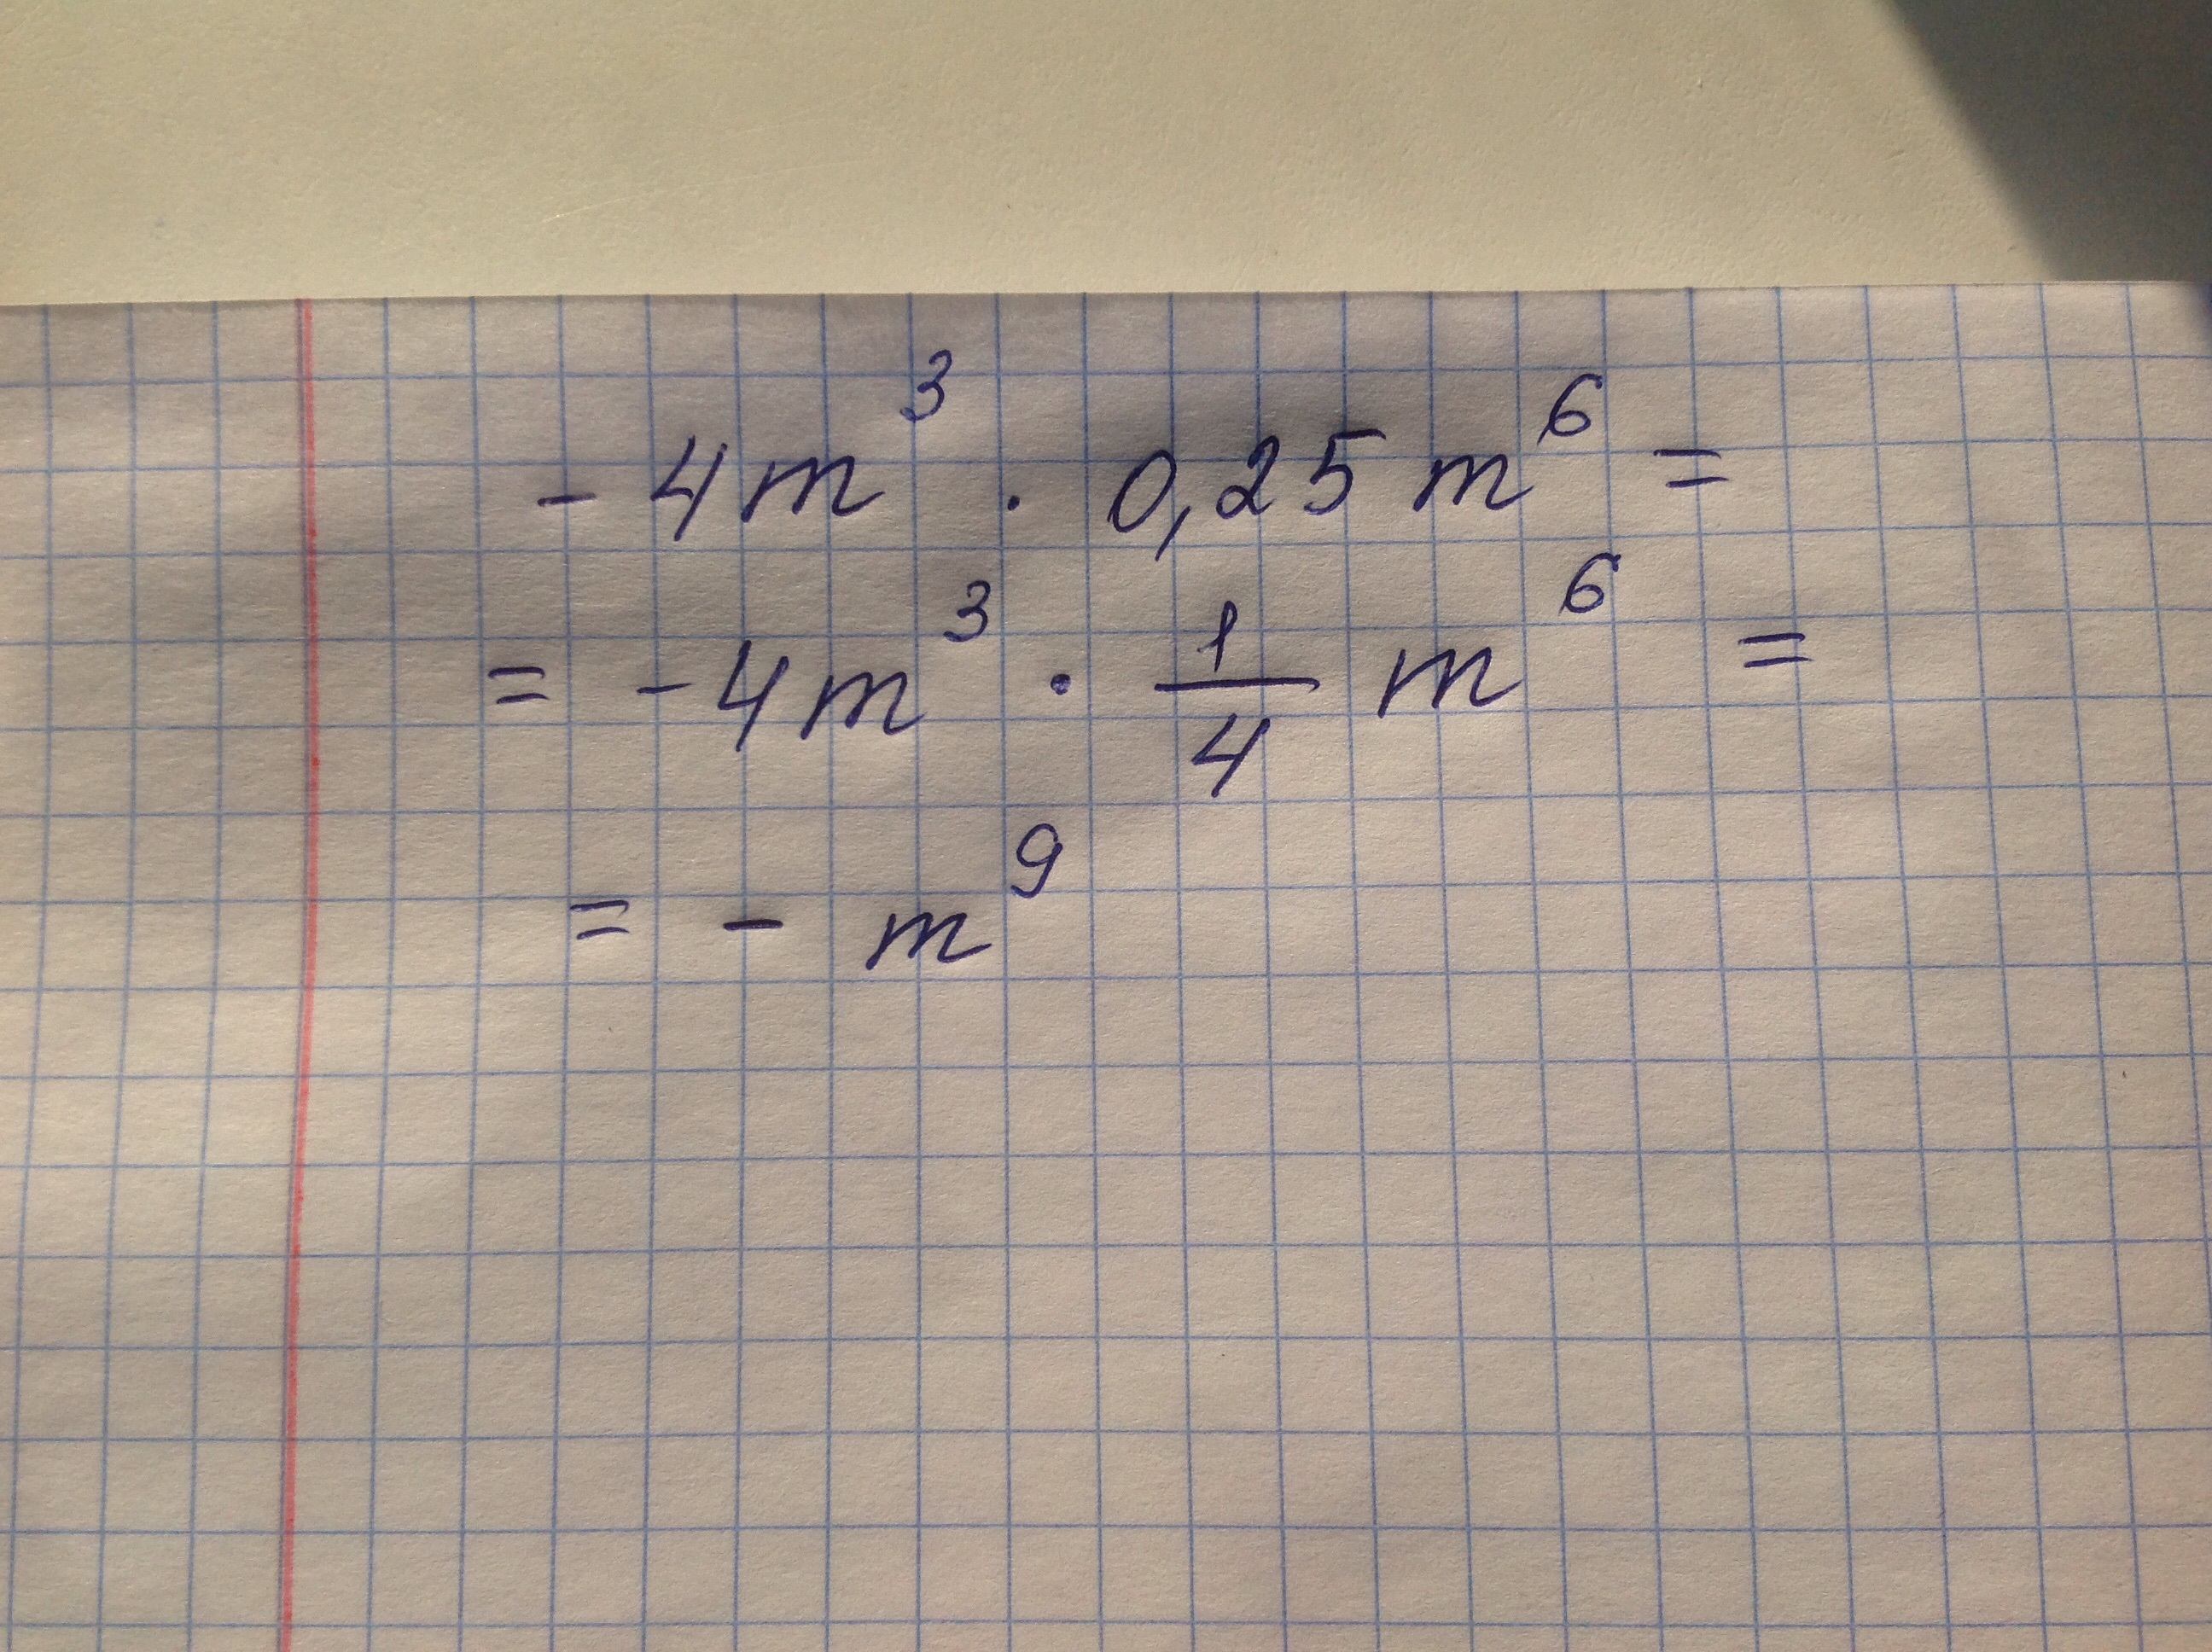 - 4m³ · 0,25m⁶ =
= -4m³ · 1/4 m⁶ =
= - m⁹